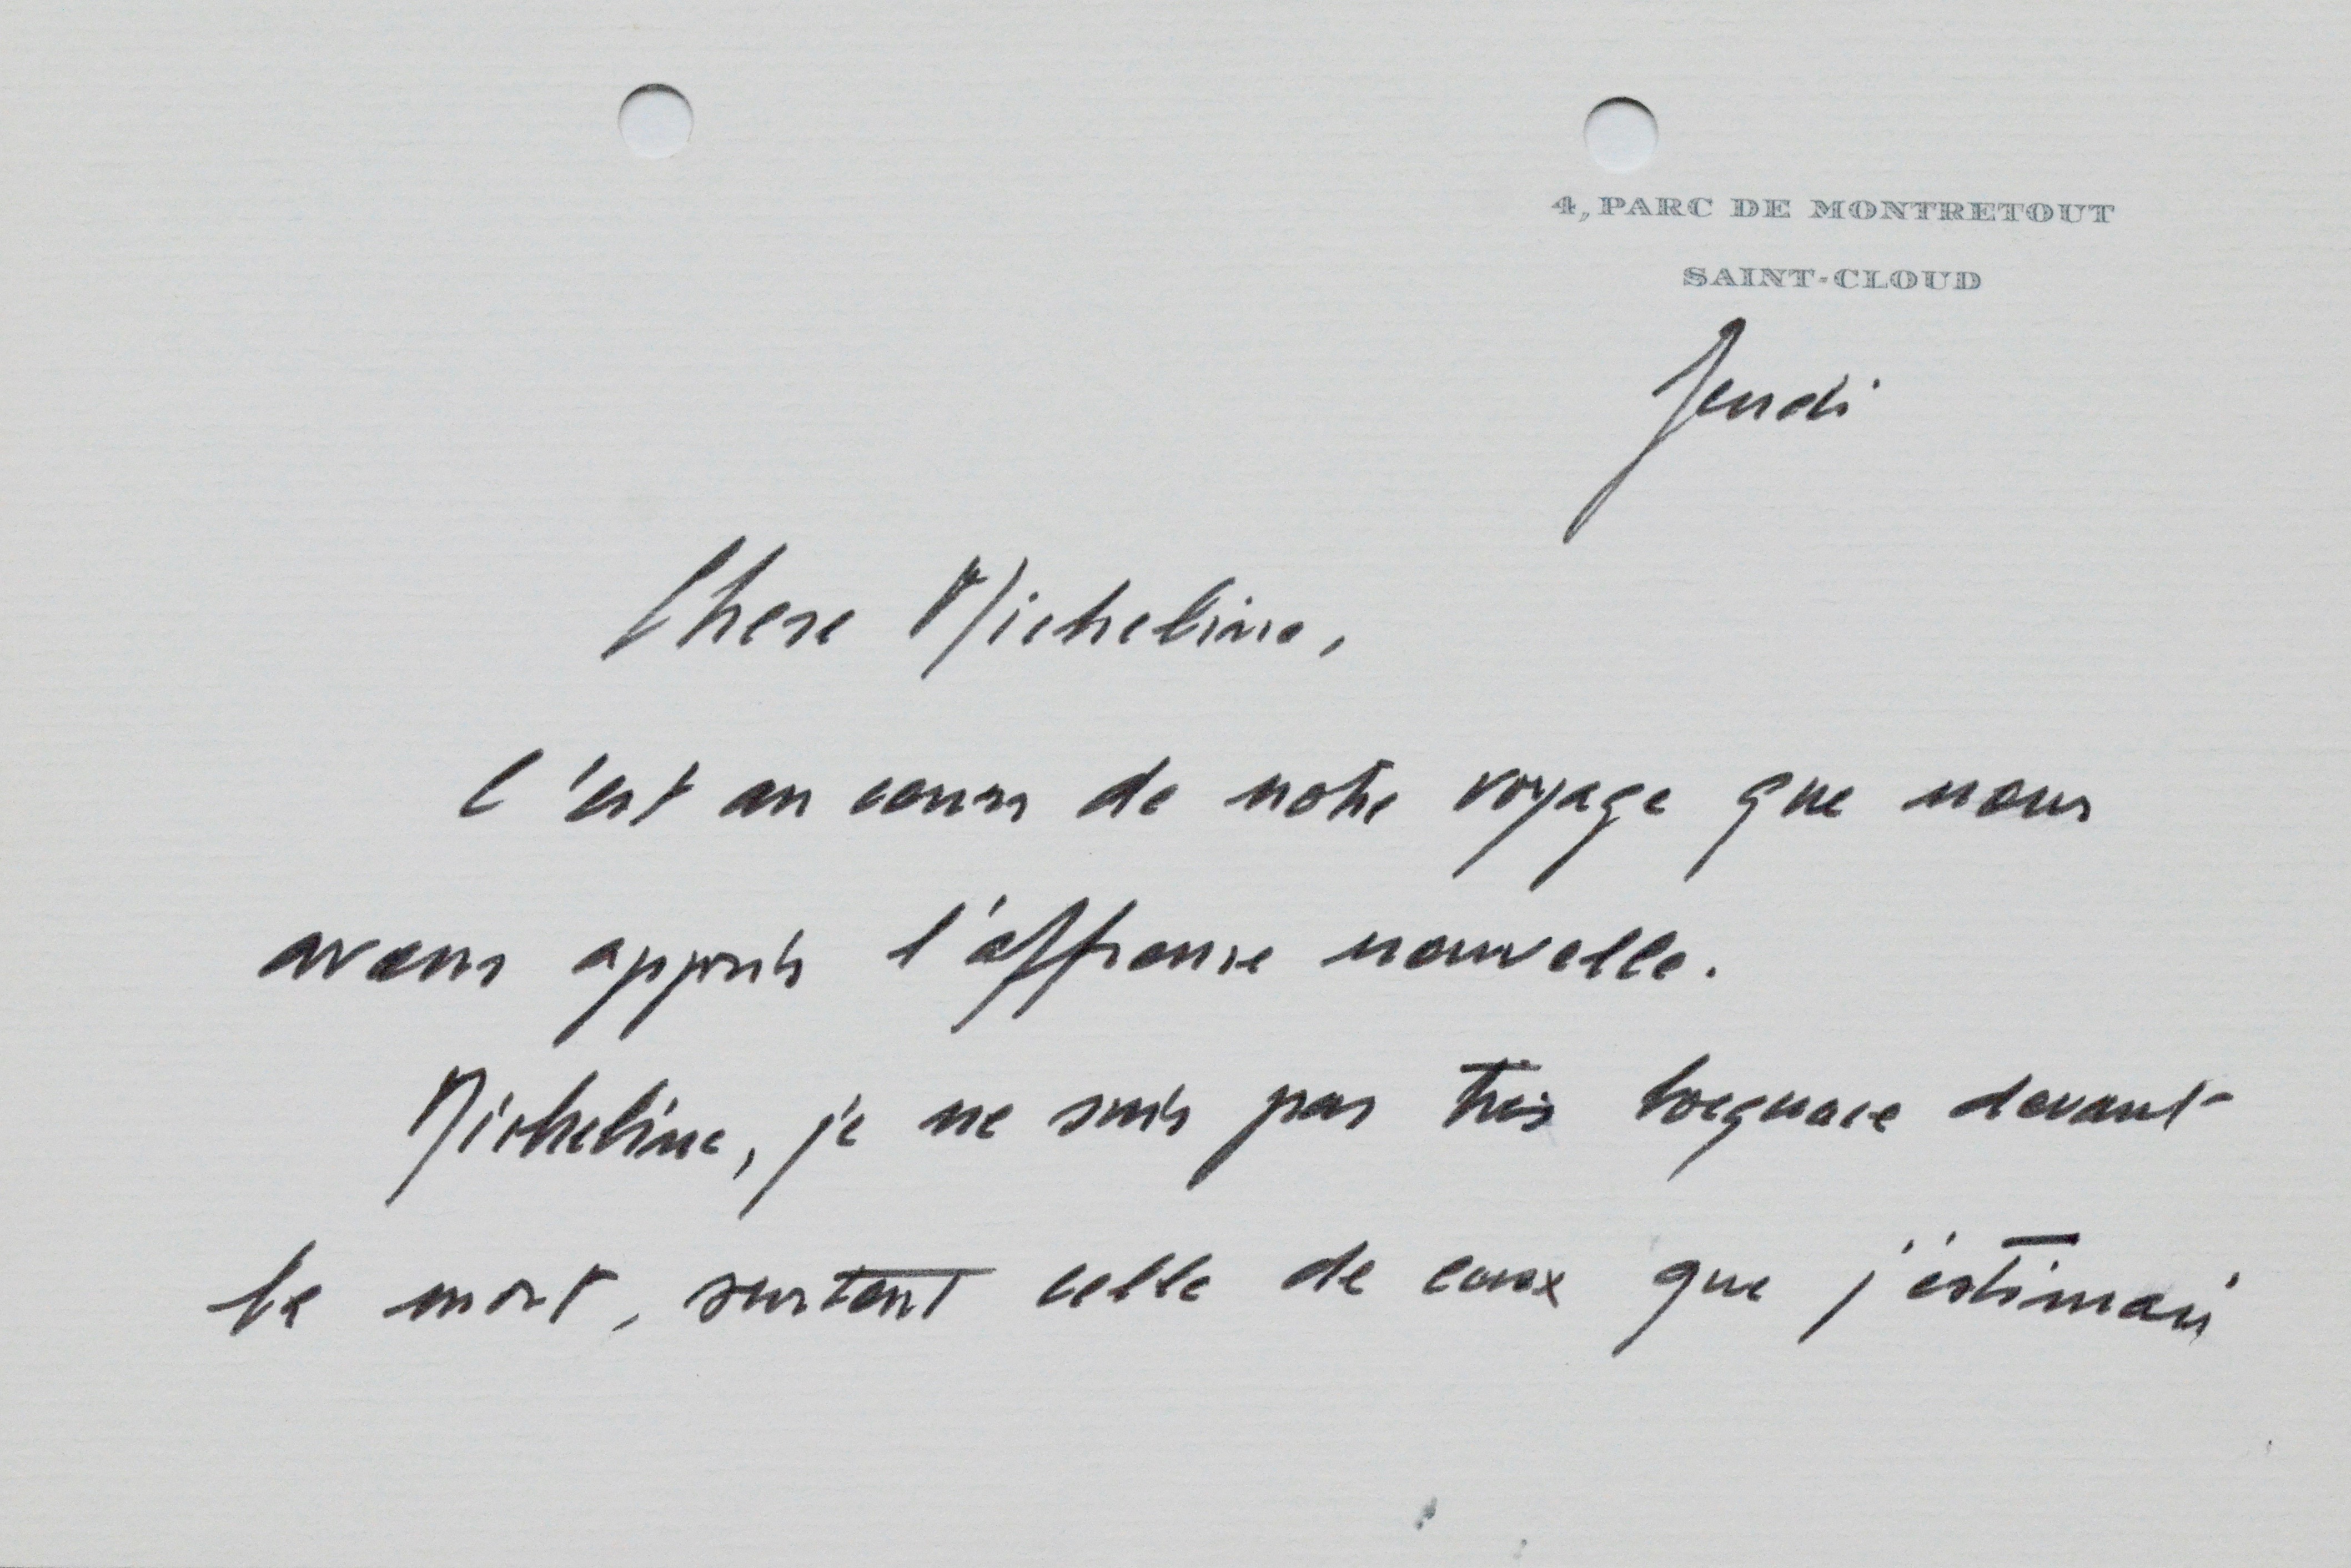 4, PARC DE MONTRETOUT
SAINT-CLOUD
Jeudi
Chere Micheline,
C'est au cours de notre voyage que nous
avons appris l'affreuse nouvelle.
Micheline, je ne suis pas très loquace devant
la mort, surtout celle de ceux que j'estimais